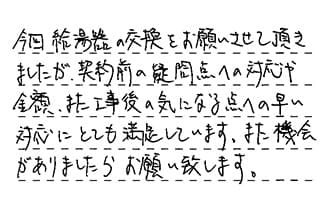 今回給湯器の交換をお願いさせて頂き
ましたが、契約前の疑問点への対応や
金額、また工事後の気になる点への早い
対応にとても満足しています。また機会
がありましたら お願い致します。